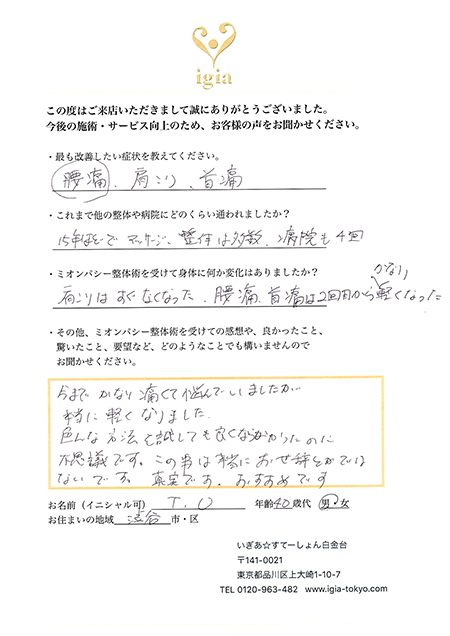 igia
この度はご来店いただきまして誠にありがとうございました。
今後の施術・サービス向上のため、お客様の声をお聞かせください。
・最も改善したい症状を教えてください。
腰痛、肩こり、首痛
・これまで他の整体や病院にどのくらい通われましたか？
15年ほどでマッサージ、整体は多数、病院も4回
・ミオンパシー整体術を受けて身体に何か変化はありましたか？
かなり
肩こりはすぐなくなった、腰痛、首痛は2回目から軽くなった
・その他、ミオンパシー整体術を受けての感想や、良かったこと、
驚いたこと、要望など、どのようなことでも構いませんので
お聞かせください。
今までかなり痛くて悩んでいましたが
本当に軽くなりました。
色んな方法を試しても良くならなかったのに
不思議です。この事は本当にお世辞とかでは
ないです。真実です。おすすめです
お名前（イニシャル可） T.O 年齢40歳代 男・女
お住まいの地域 渋谷 市・区
いぎあ☆すてーしょん白金台
〒141-0021
東京都品川区上大崎1-10-7
TEL 0120-963-482 www.igia-tokyo.com